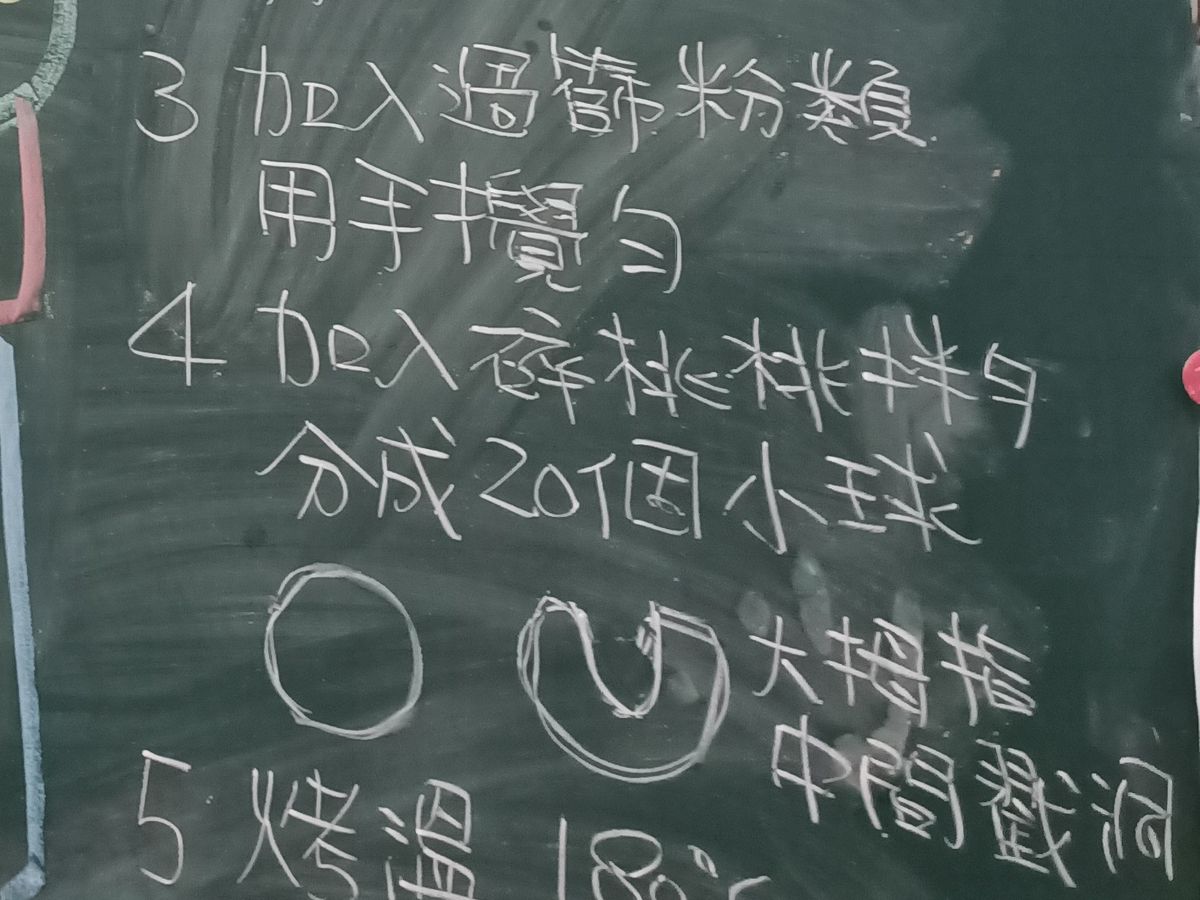 3 加入過篩粉類
用手攪勻
4 加入碎核桃拌勻
分成20個小球
大拇指
中間戳洞
5 烤溫 180°c